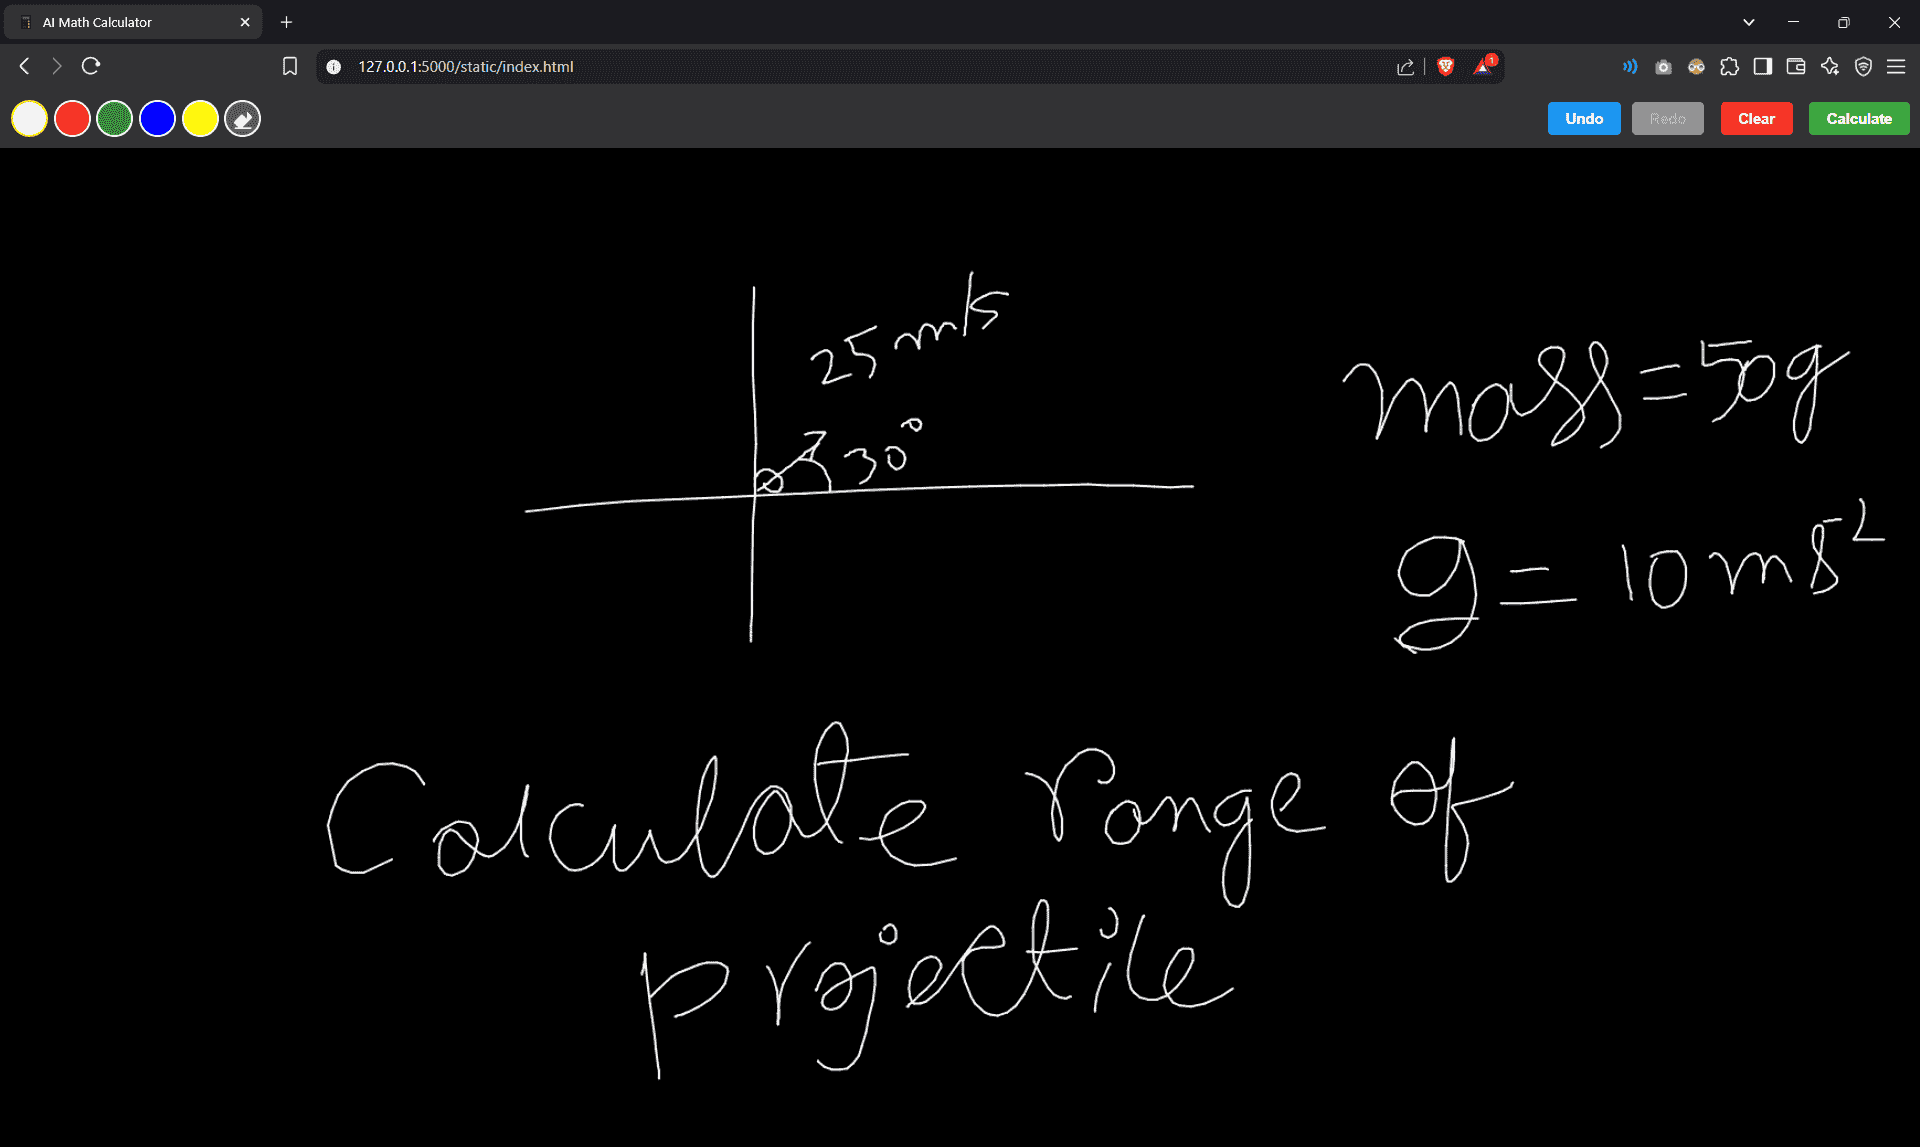 AI Math Calculator
127.0.0.1:5000/static/index.html
1
Undo Redo Clear Calculate
25 m/s
30°
mass = 50g
g = 10 ms²
Calculate range of
projectile